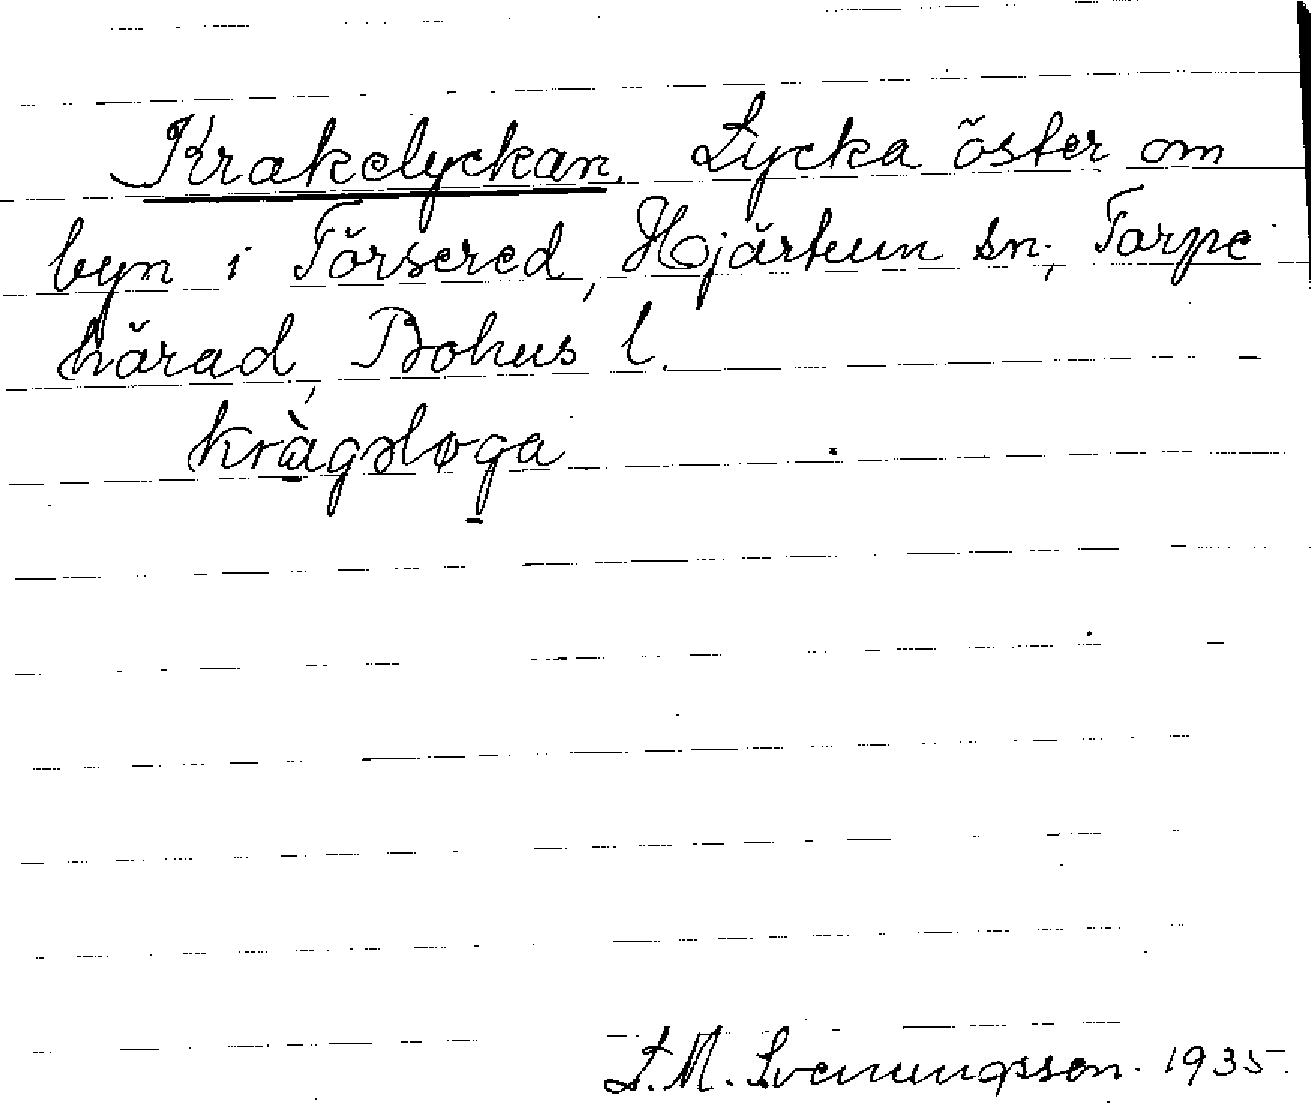 Krakelyckan. Lycka öster om
byn i Törsered, Hjärtum sn., Torpe
härad, Bohus l.
kràgəløga
L. M. Svenungsson. 1935.